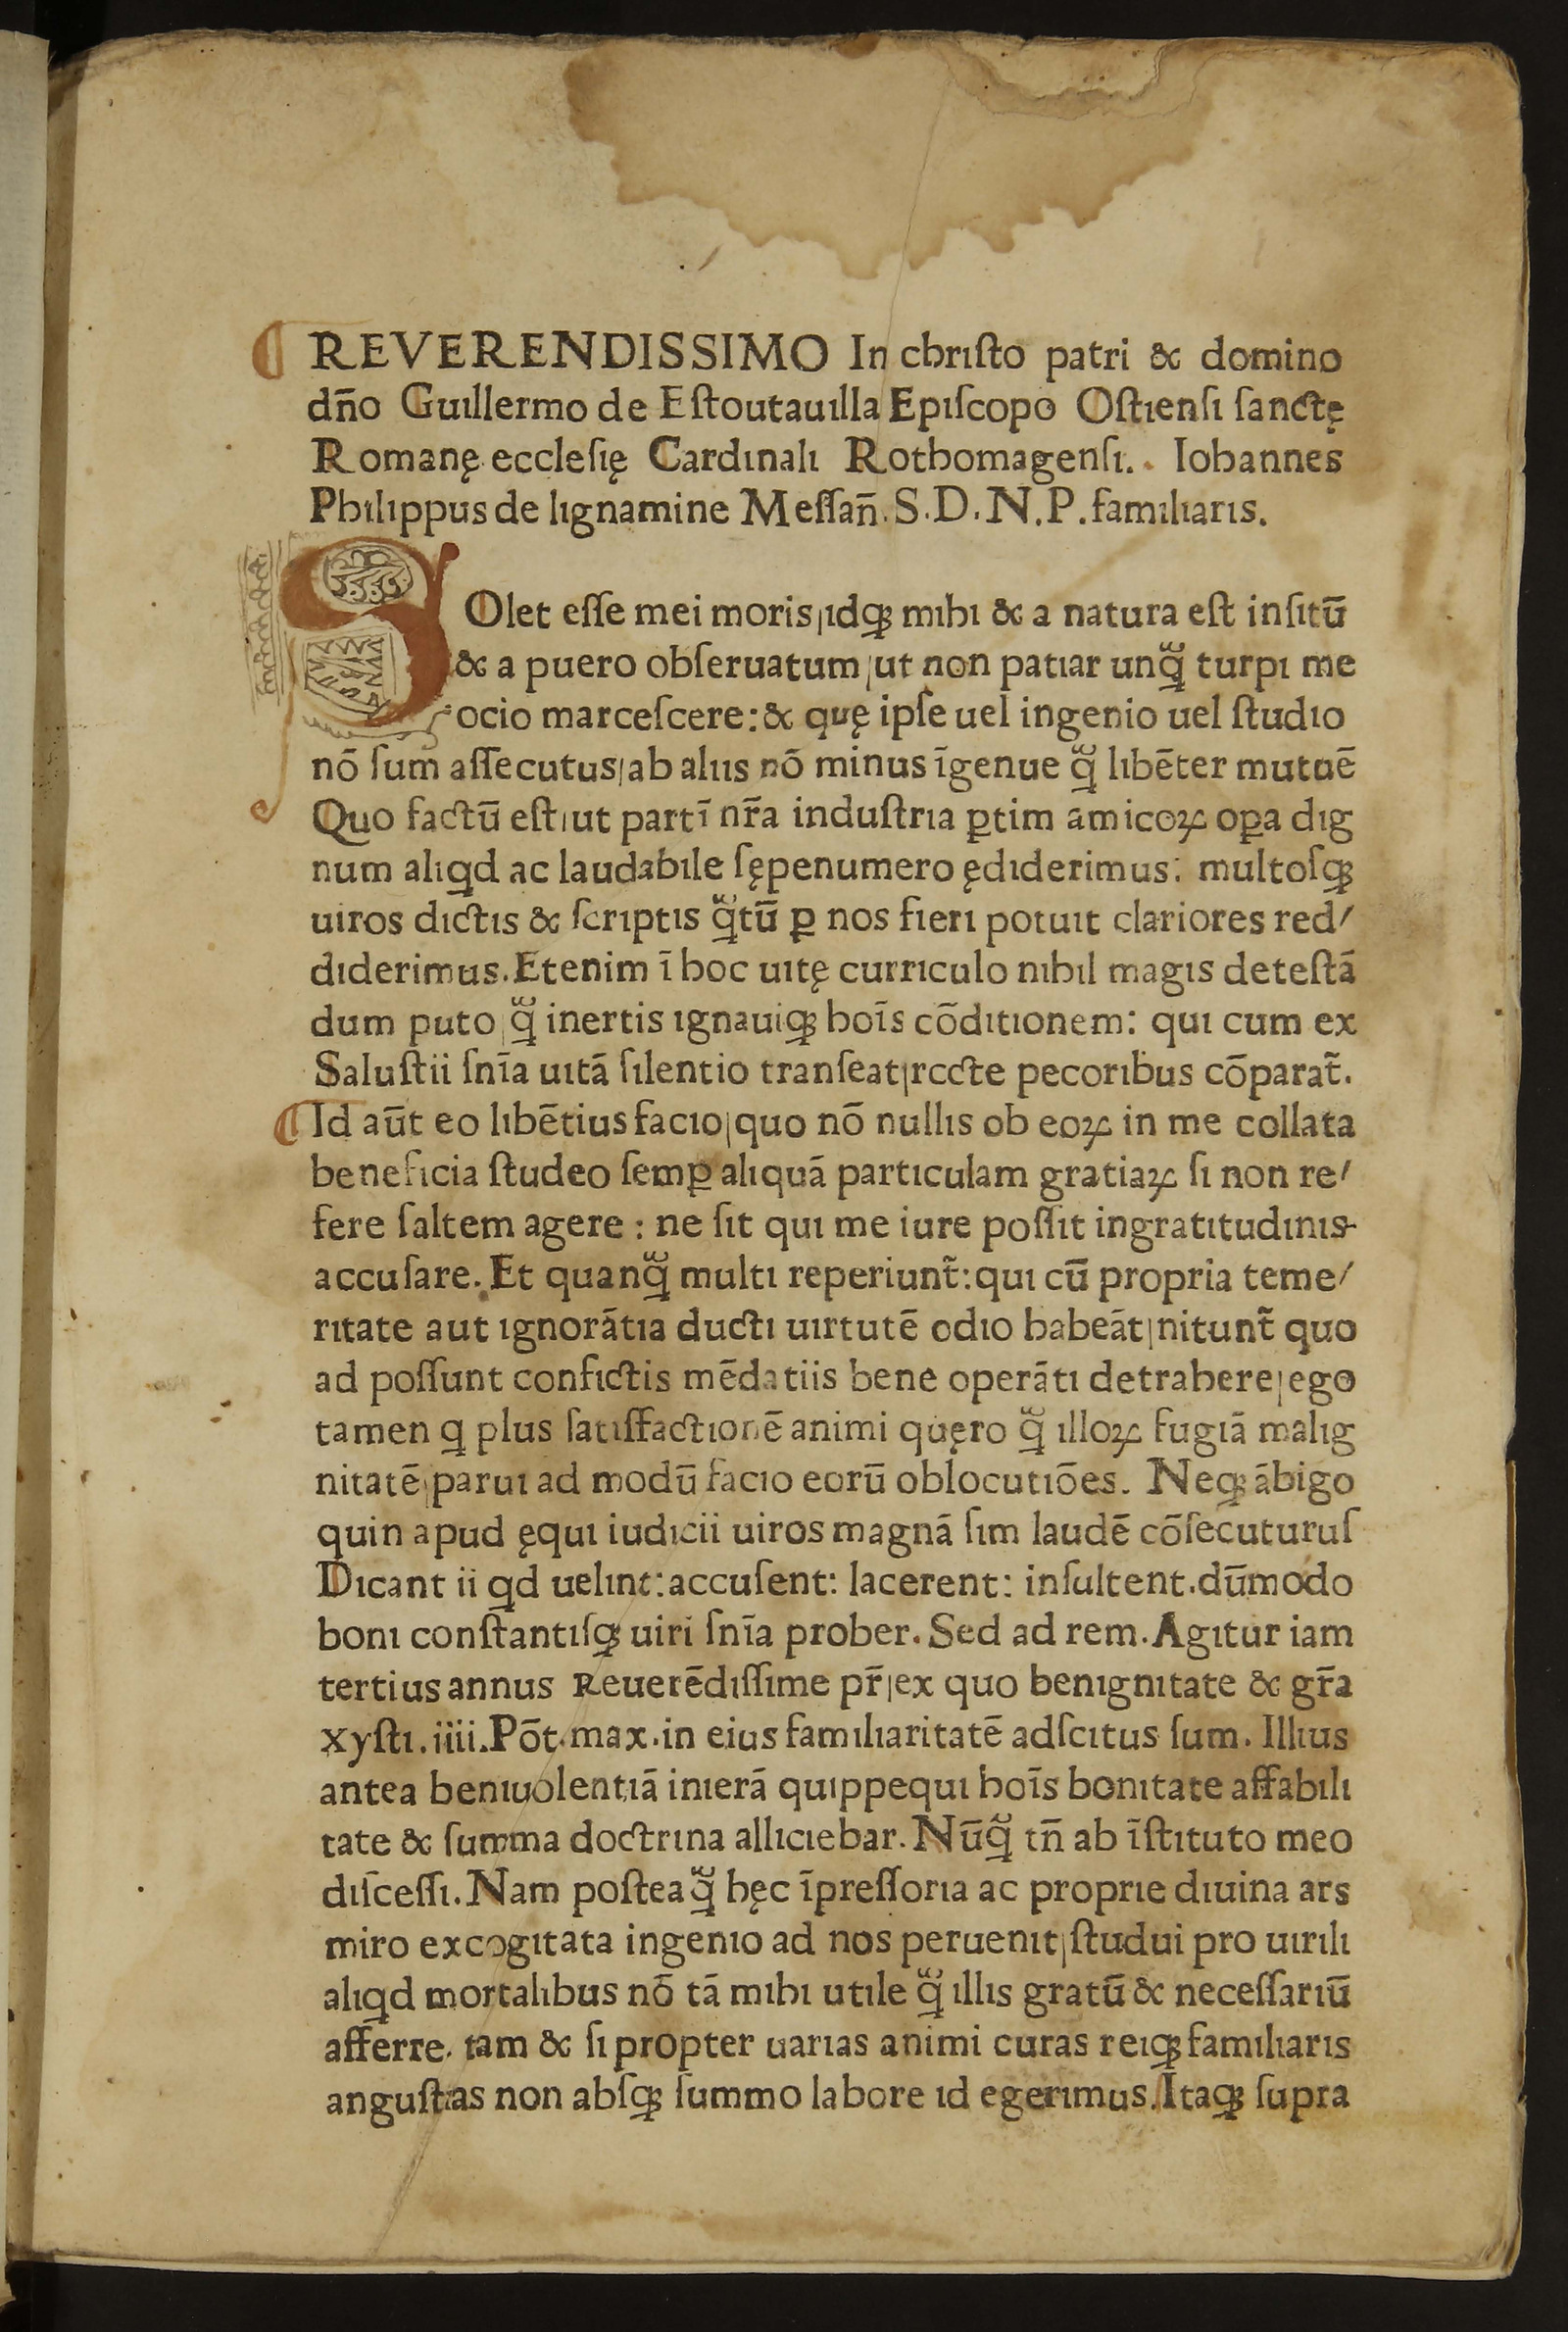 REVERENDISSIMO In christo patri & domino
dño Guillermo de Estoutauilla Episcopo Ostiensi sanctę
Romanę ecclesię Cardinali Rothomagensi. Iohannes
Philippus de lignamine Messañ. S.D.N.P. familiaris.
SOlet esse mei moris,idqꝫ mihi & a natura est insitū
& a puero obseruatum,ut non patiar unq̃ turpi me
ocio marcescere:& quę ipse uel ingenio uel studio
nō sum assecutus,ab aliis nō minus īgenue q̃ libēter mutuē
Quo factū est,ut partī nr̃a industria ꝑtim amicoꝝ oꝑa dig
num aliqd ac laudabile sępenumero ędiderimus: multosqꝫ
uiros dictis & scriptis q̃tū ꝑ nos fieri potuit clariores red/
diderimus.Etenim ī hoc uitę curriculo nihil magis detestā
dum puto,q̃ inertis ignauiqꝫ hoīs cōditionem: qui cum ex
Salustii snīa uitā silentio transeat,rccte pecoribus cōparat̃.
Id aūt eo libētius facio,quo nō nullis ob eoꝝ in me collata
beneficia studeo semꝑ aliquā particulam gratiaꝝ si non re/
fere saltem agere : ne sit qui me iure possit ingratitudinis
accusare. Et quanq̃ multi reperiunt̃:qui cū propria teme/
ritate aut ignorātia ducti uirtutē odio habeāt,nitunt̃ quo
ad possunt confictis mēdatiis bene operāti detrahere,ego
tamen ꝙ plus satisfactionē animi quęro q̃ illoꝝ fugiā malig
nitatē,parui ad modū facio eorū oblocutiōes. Neqꝫ ābigo
quin apud ęqui iudicii uiros magnā sim laudē cōsecuturus
Dicant ii qd uelint:accusent: lacerent: insultent.dūmodo
boni constantisqꝫ uiri snīa prober. Sed ad rem.Agitur iam
tertius annus Reuerēdissime pr̃,ex quo benignitate & gr̃a
xysti.iiii.Pōt.max.in eius familiaritatē adscitus sum. Illius
antea beniuolentiā inierā quippequi hoīs bonitate affabili
tate & summa doctrina alliciebar. Nūq̃ tñ ab īstituto meo
discessi.Nam posteaq̃ hęc īpressoria ac proprie diuina ars
miro excogitata ingenio ad nos peruenit,studui pro uirili
aliqd mortalibus nō tā mihi utile q̃ illis gratū & necessariū
afferre. tam & si propter uarias animi curas reiqꝫ familiaris
angustias non absqꝫ summo labore id egerimus.Itaqꝫ supra